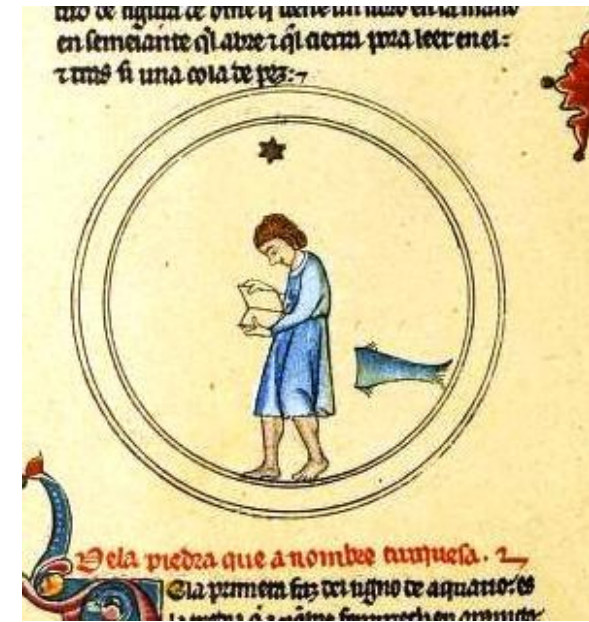 de figura de ome q̃ tiene un libro en la mano
en semeiante q̃l abre ⁊ q̃l cierra pora leer en el:
⁊ tras si una cola de pez:⁊
De la piedra que a nombre turquesa.
E la primera faz del signo de aquario: es
la piedra q̃ a nõbre